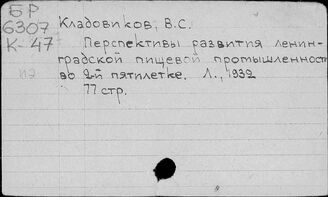 БР
6307
К-47
Кладовиков, В.С.
Перспективы развития ленин-
градской пищевой промышленност
во 2-й пятилетке. Л., 1932
77 стр.